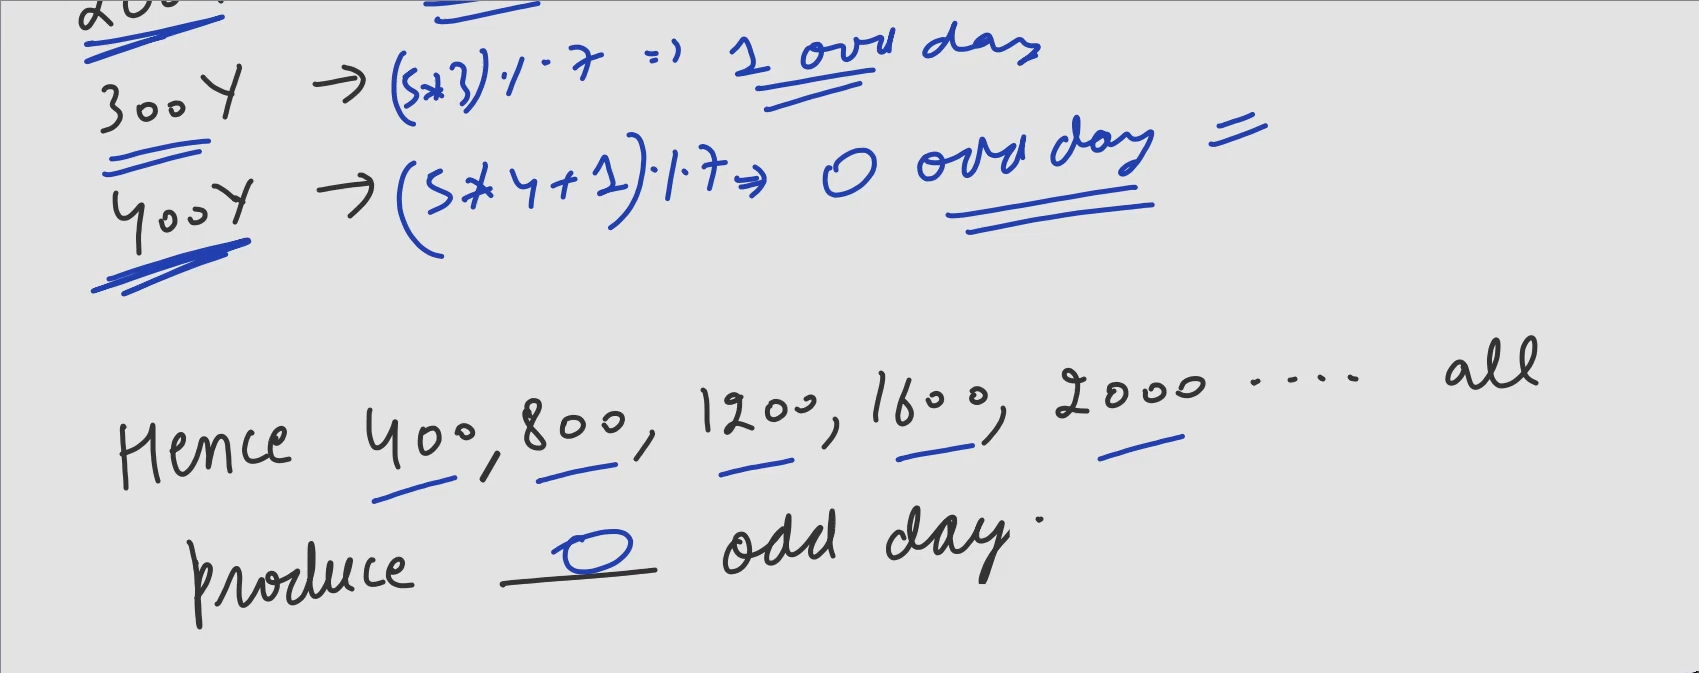 300Y → (5*3) % 7 => 1 odd day
400Y → (5*4+1) % 7 => 0 odd day =
Hence 400, 800, 1200, 1600, 2000 .... all
produce 0 odd day.